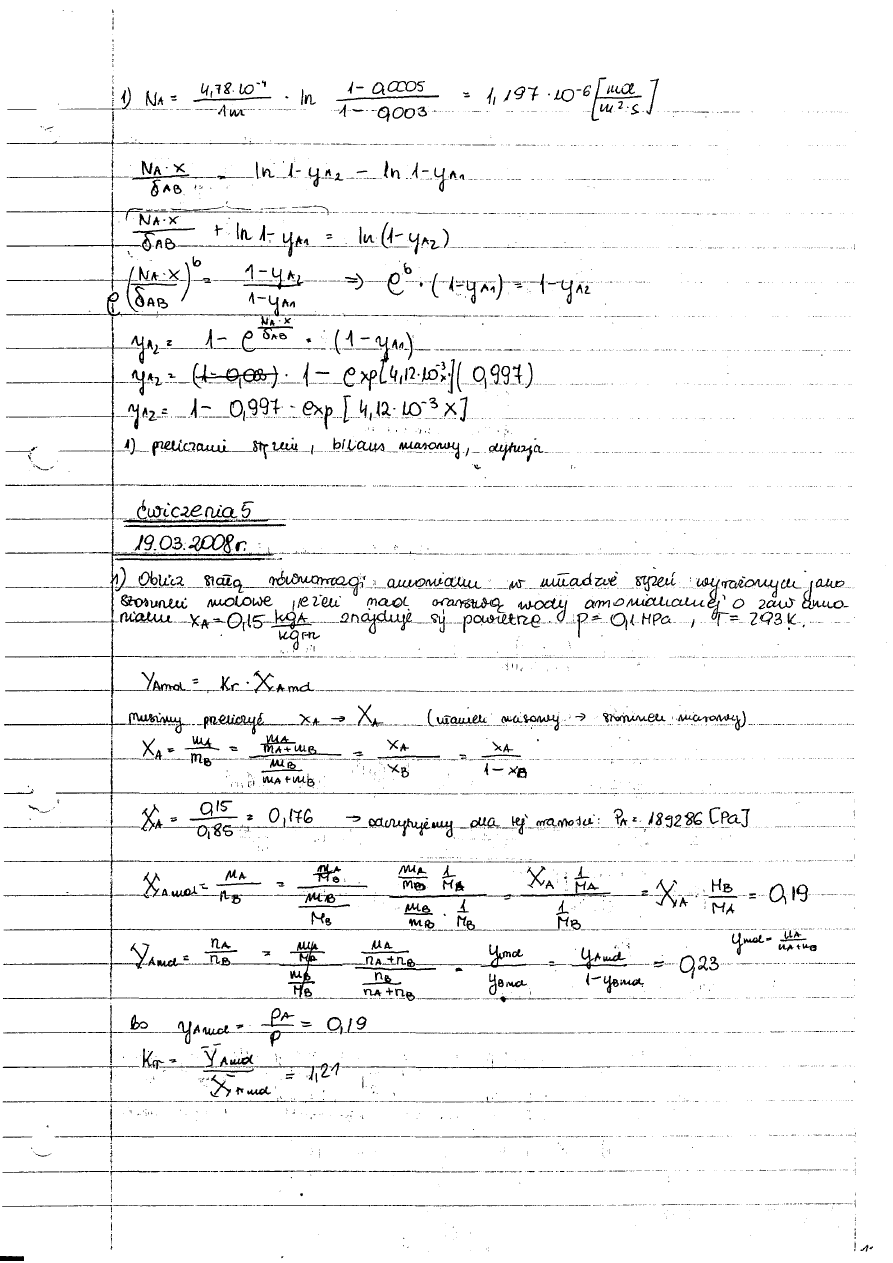 1) NA = 4,78·10⁻⁴ / 1m · ln (1 - 0,0005) / (1 - 0,003) = 1,197 · 10⁻⁶ [mol / m²·s]
NA·x / δAB = ln 1-yA2 - ln 1-yA1
NA·x / δAB + ln 1-yA1 = ln (1-yA2)
e (NA·x / δAB)ᵇ = (1-yA2) / (1-yA1) ⇒ eᵇ · (1-yA1) = 1-yA2
yA2 = 1 - e^(NA·x / δAB) · (1-yA1)
yA2 = · 1 - exp[4,12·10⁻³x] (0,997)
yA2 = 1 - 0,997 · exp [4,12·10⁻³ x]
1) przeliczanie stężeń, bilans masowy, dyfuzja
ćwiczenia 5
19.03.2008r.
1) Oblicz stałą równowagi amoniaku w układzie stężeń wyrażonych jako
stosunki molowe, jeżeli nad warstwą wody amoniakalnej o zaw amo-
niaku xA = 0,15 kgA / kgm znajduje się powietrze p = 0,1 MPa, T = 293K.
YAmol = Kr · XAmol
musimy przeliczyć xA → XA (ułamek masowy → stosunek masowy)
XA = mA / mB = (mA / mA+mB) / (mB / mA+mB) = xA / xB = xA / 1-xB
XA = 0,15 / 0,85 = 0,176 → odczytujemy dla tej wartości: PA = 189286 [Pa]
XAmol = nA / nB = (mA / MA) / (mB / MB) (mA / mB · 1 / MA) / (mB / mB · 1 / MB) = (XA · 1 / MA) / (1 / MB) = XA · MB / MA = 0,19
YAmol = nA / nB = (mA / MA) / (mB / MB) (nA / nA+nB) / (nB / nA+nB) = yAmol / yBmol = yAmol / 1-yBmol = 0,23 ymol = nA / nA+nB
bo yAmol = PA / P = 0,19
Kr = YAmol / XAmol = 1,21